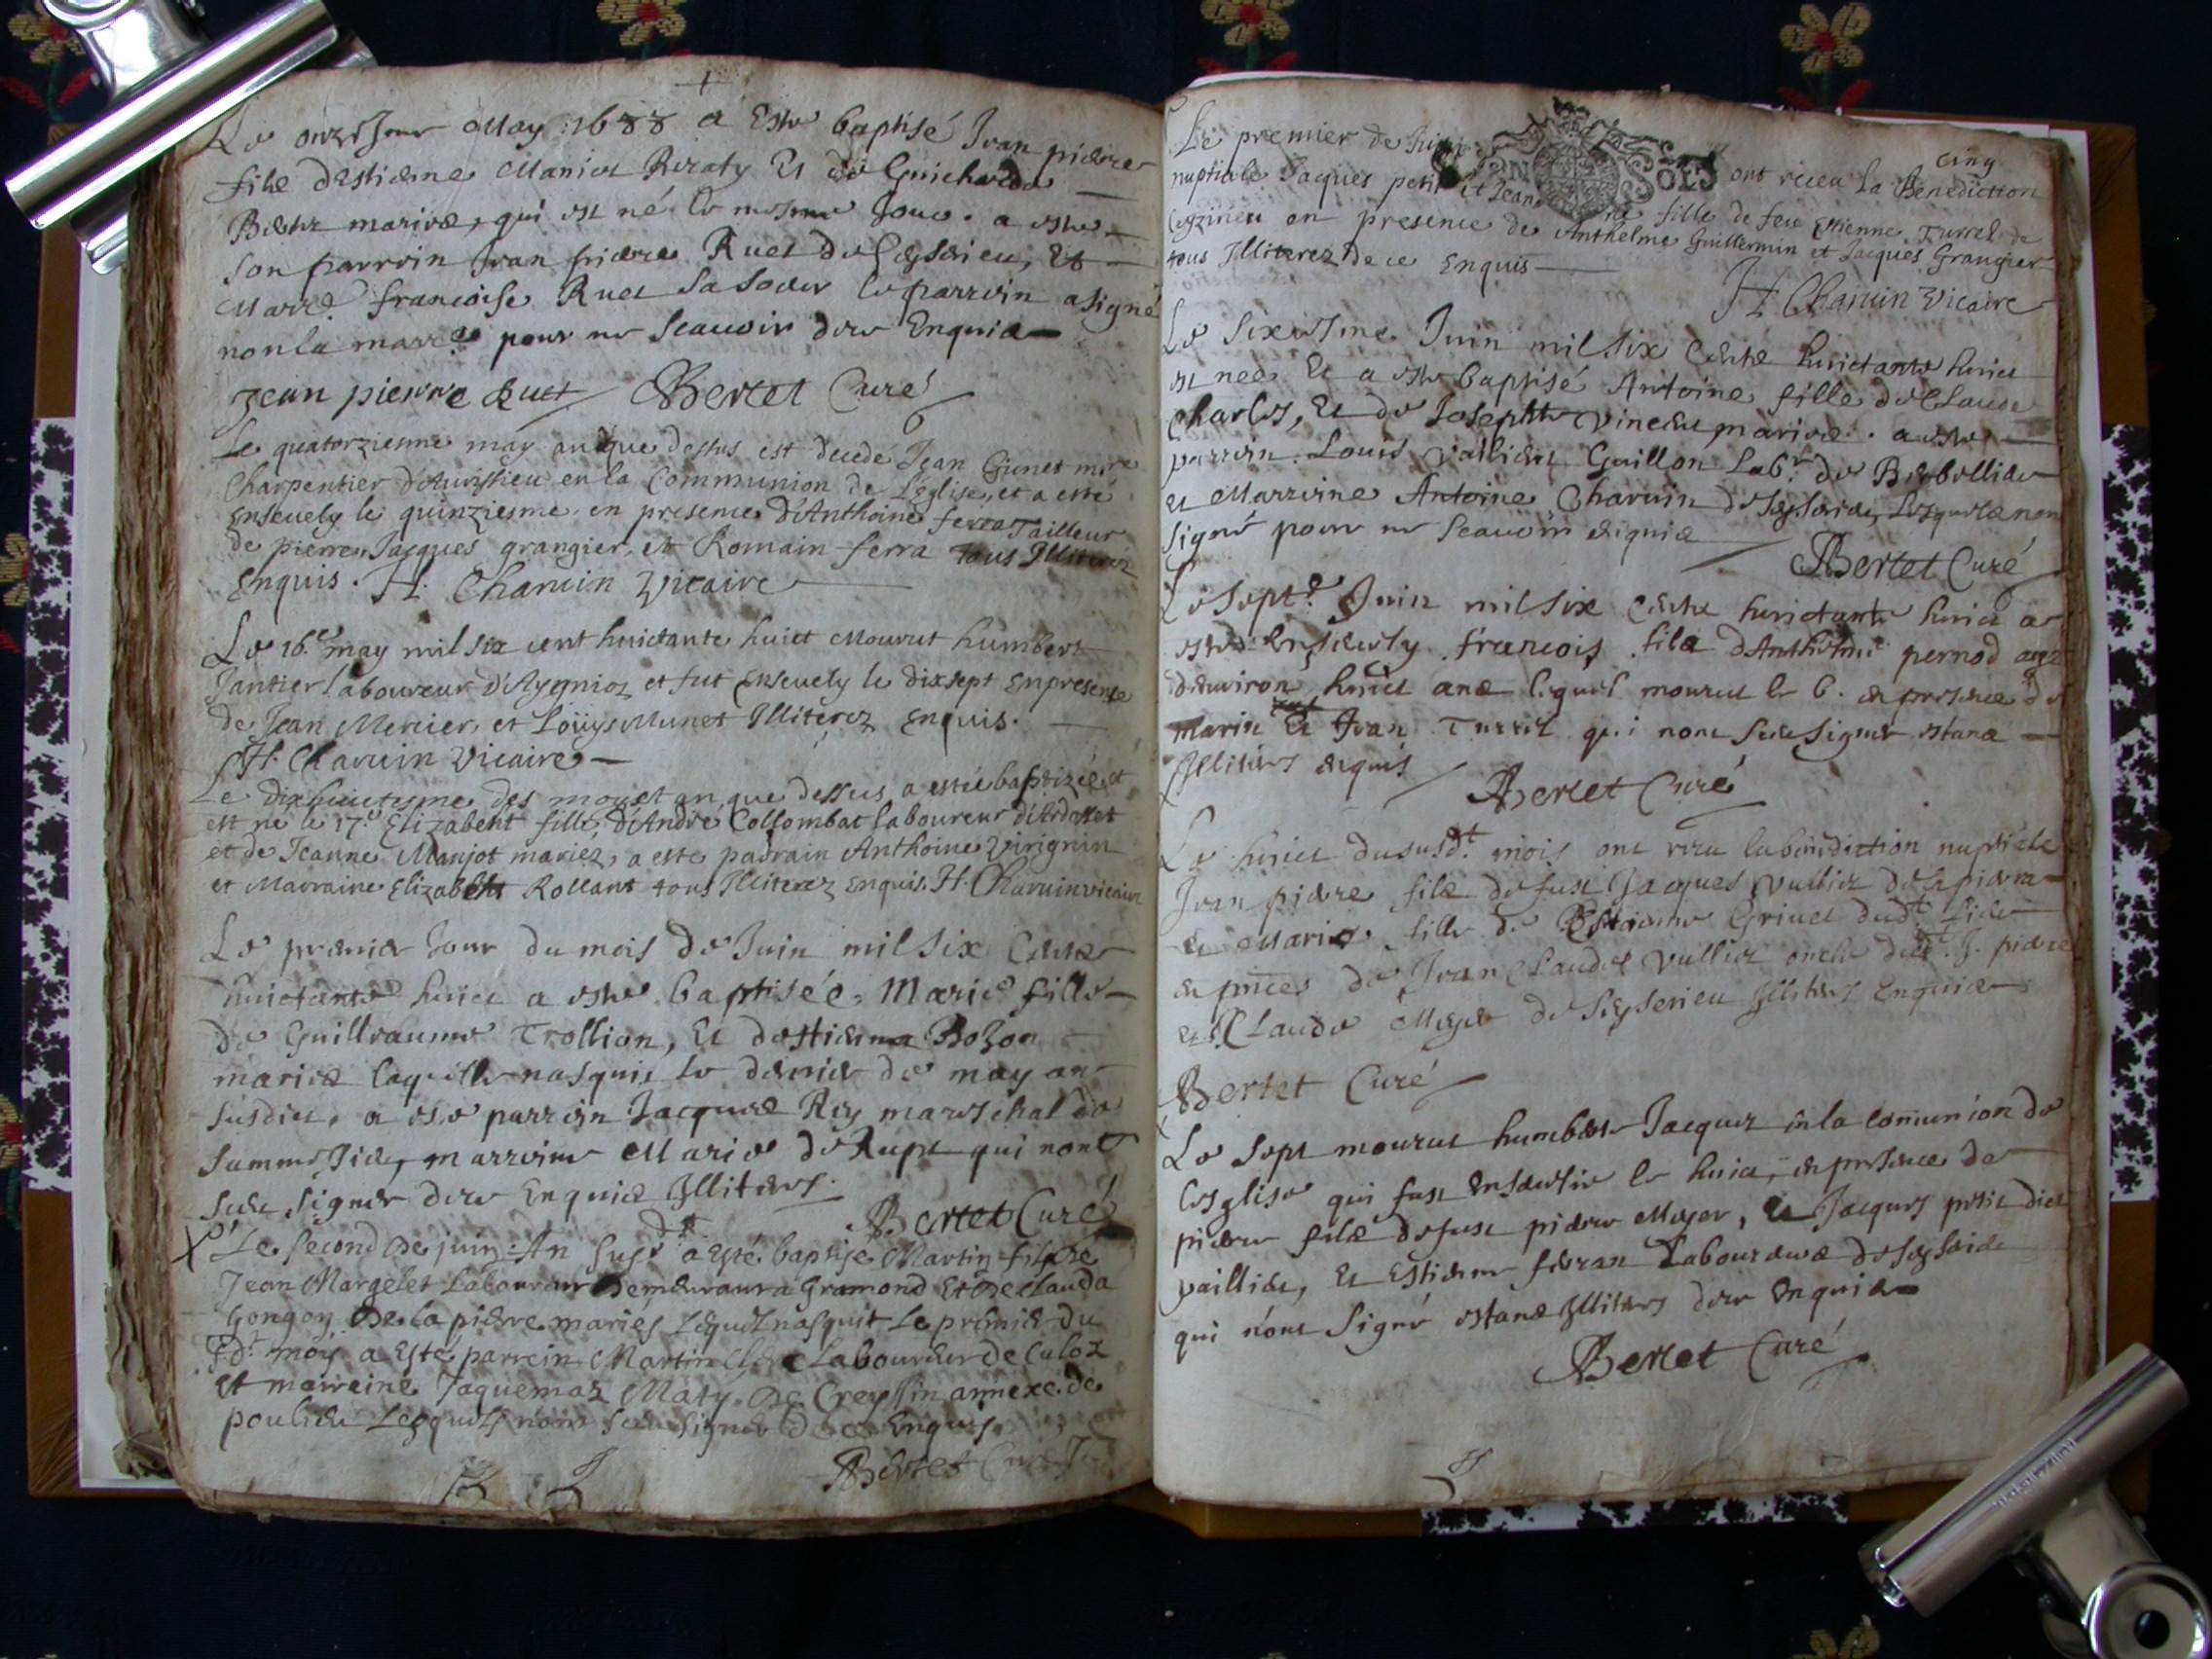 Le onziesme May 1688 a este baptisé Jean pierre
fils d'Estienne Manier Rezaty Et de Guicharde
mariez, qui est né le mesme Jour. a este
son parrein Jean pierre Ruet de Ceyserieu, Et
Marre. francoise Ruet sa soeur le parrein a signé
non la marre. pour ne scauoir de ce Enquis
Jean pierre Ruet Bertet Curé
Le quatorziesme may an que dessus est decedé Jean Ginet mre
Charpentier d'Auissieu en la Communion de L'Eglise, et a esté
Enseuely le quinziesme en presence d'Anthoine ferra Tailleur
de pierre, Jacques grangier, et Romain ferra tous Illiterez
Enquis. H. Charuin Vicaire
Le 16.e may mil six cent huictante huict Mourut humbert
Jantier laboureur d'Aygnioz et fut Enseuely le dixsept En presence
de Jean Mercier, et Loüys Munet Illiterez Enquis.
H. Charuin Vicaire
Le dixhuictiesme des moys et an que dessus a esté baptizée et
est né le 17.e Elizabeht fille d'André Collombat laboureur d'Ardosset
et de Jeanne Manjot mariez, a este padrain Anthoine Virignin
et Marraine Elizabeht Rollant tous Illiterez Enquis. H. Charuin vicaire
Le premier Jour du mois de Juin mil six Cents
huictante huict a este baptisée Marie fille
de Guilleaume Trollion, Et d'Estienna Bozon
mariez laquelle nasquit le dernier de may an
susdict, a este parrein Jacques Rey mareschal de
marreine Marie de Rupt qui n'ont
sceu signer de ce Enquis Illiters.
Bertet Curé
Le second de juin An susdt a Esté baptise Martin fils de
Jean Margelet Laboureur demeurant a Gramond Et de Clauda
Gongon De la pierre mariés Lequel nasquit Le premier du
sd.t moy a Esté parrein Martin Laboureur de Culoz
Et marreine Jaquemaz Maty De Creyssin annexe de
poulieu Lesquels n'ont sceu signer De ce Enquis
Bertet Curé
Le premier de Juin ont receu la Benediction
cinq
nuptiale Jacques petit et Jeanne fille de feu Estienne Turrel de
Ceyzirieu en presence de Anthelme Guillermin et Jacques Grangier
tous Illiterez de ce Enquis
H. Charuin Vicaire
Le sixiesme Juin mil six Cents huictante huict
est nee Et a este baptisé Antoine fille de Claude
Charles, Et de Josephte Vincent mariez. a este
parrein Louis Guillon Lab.r de
et Marreine Antoine Charuin de Ceyserieu, Lesquels n'ont
signé pour ne scauoir Enquis
Bertet Curé
Le sept.e Juin mil six Cents huictante huict a
este Enseuely francois fils d'Anthelme pernod agé
d'enuiron huict ans lequel mourut le 6. en presence de
marin Et Jean Turrel qui n'ont sceu signer estans
Illiters enquis Bertet Curé
Le huict dususd.t mois ont receu la benediction nuptiale
Jean pierre fils de feu Jacques Vulliez de la pierre
Et Marie fille d'Estienne Griuet dud.t lieu
en pnces de Jean Claude Vulliez oncle dud.t J. pierre
et Claude Meyer de Ceyserieu Illiters Enquis
Bertet Curé
Le sept mourut humbert Jacquez en la comunion de
L'esglise qui fust Enseueli le huict, en presence de
pierre fils de feu pierre Meyer, Et Jacques petit dict
vaillier, Et Estienne ferran Laboureurs de Ceyserieu
qui n'ont signé estans Illiters de ce Enquis
Bertet Curé